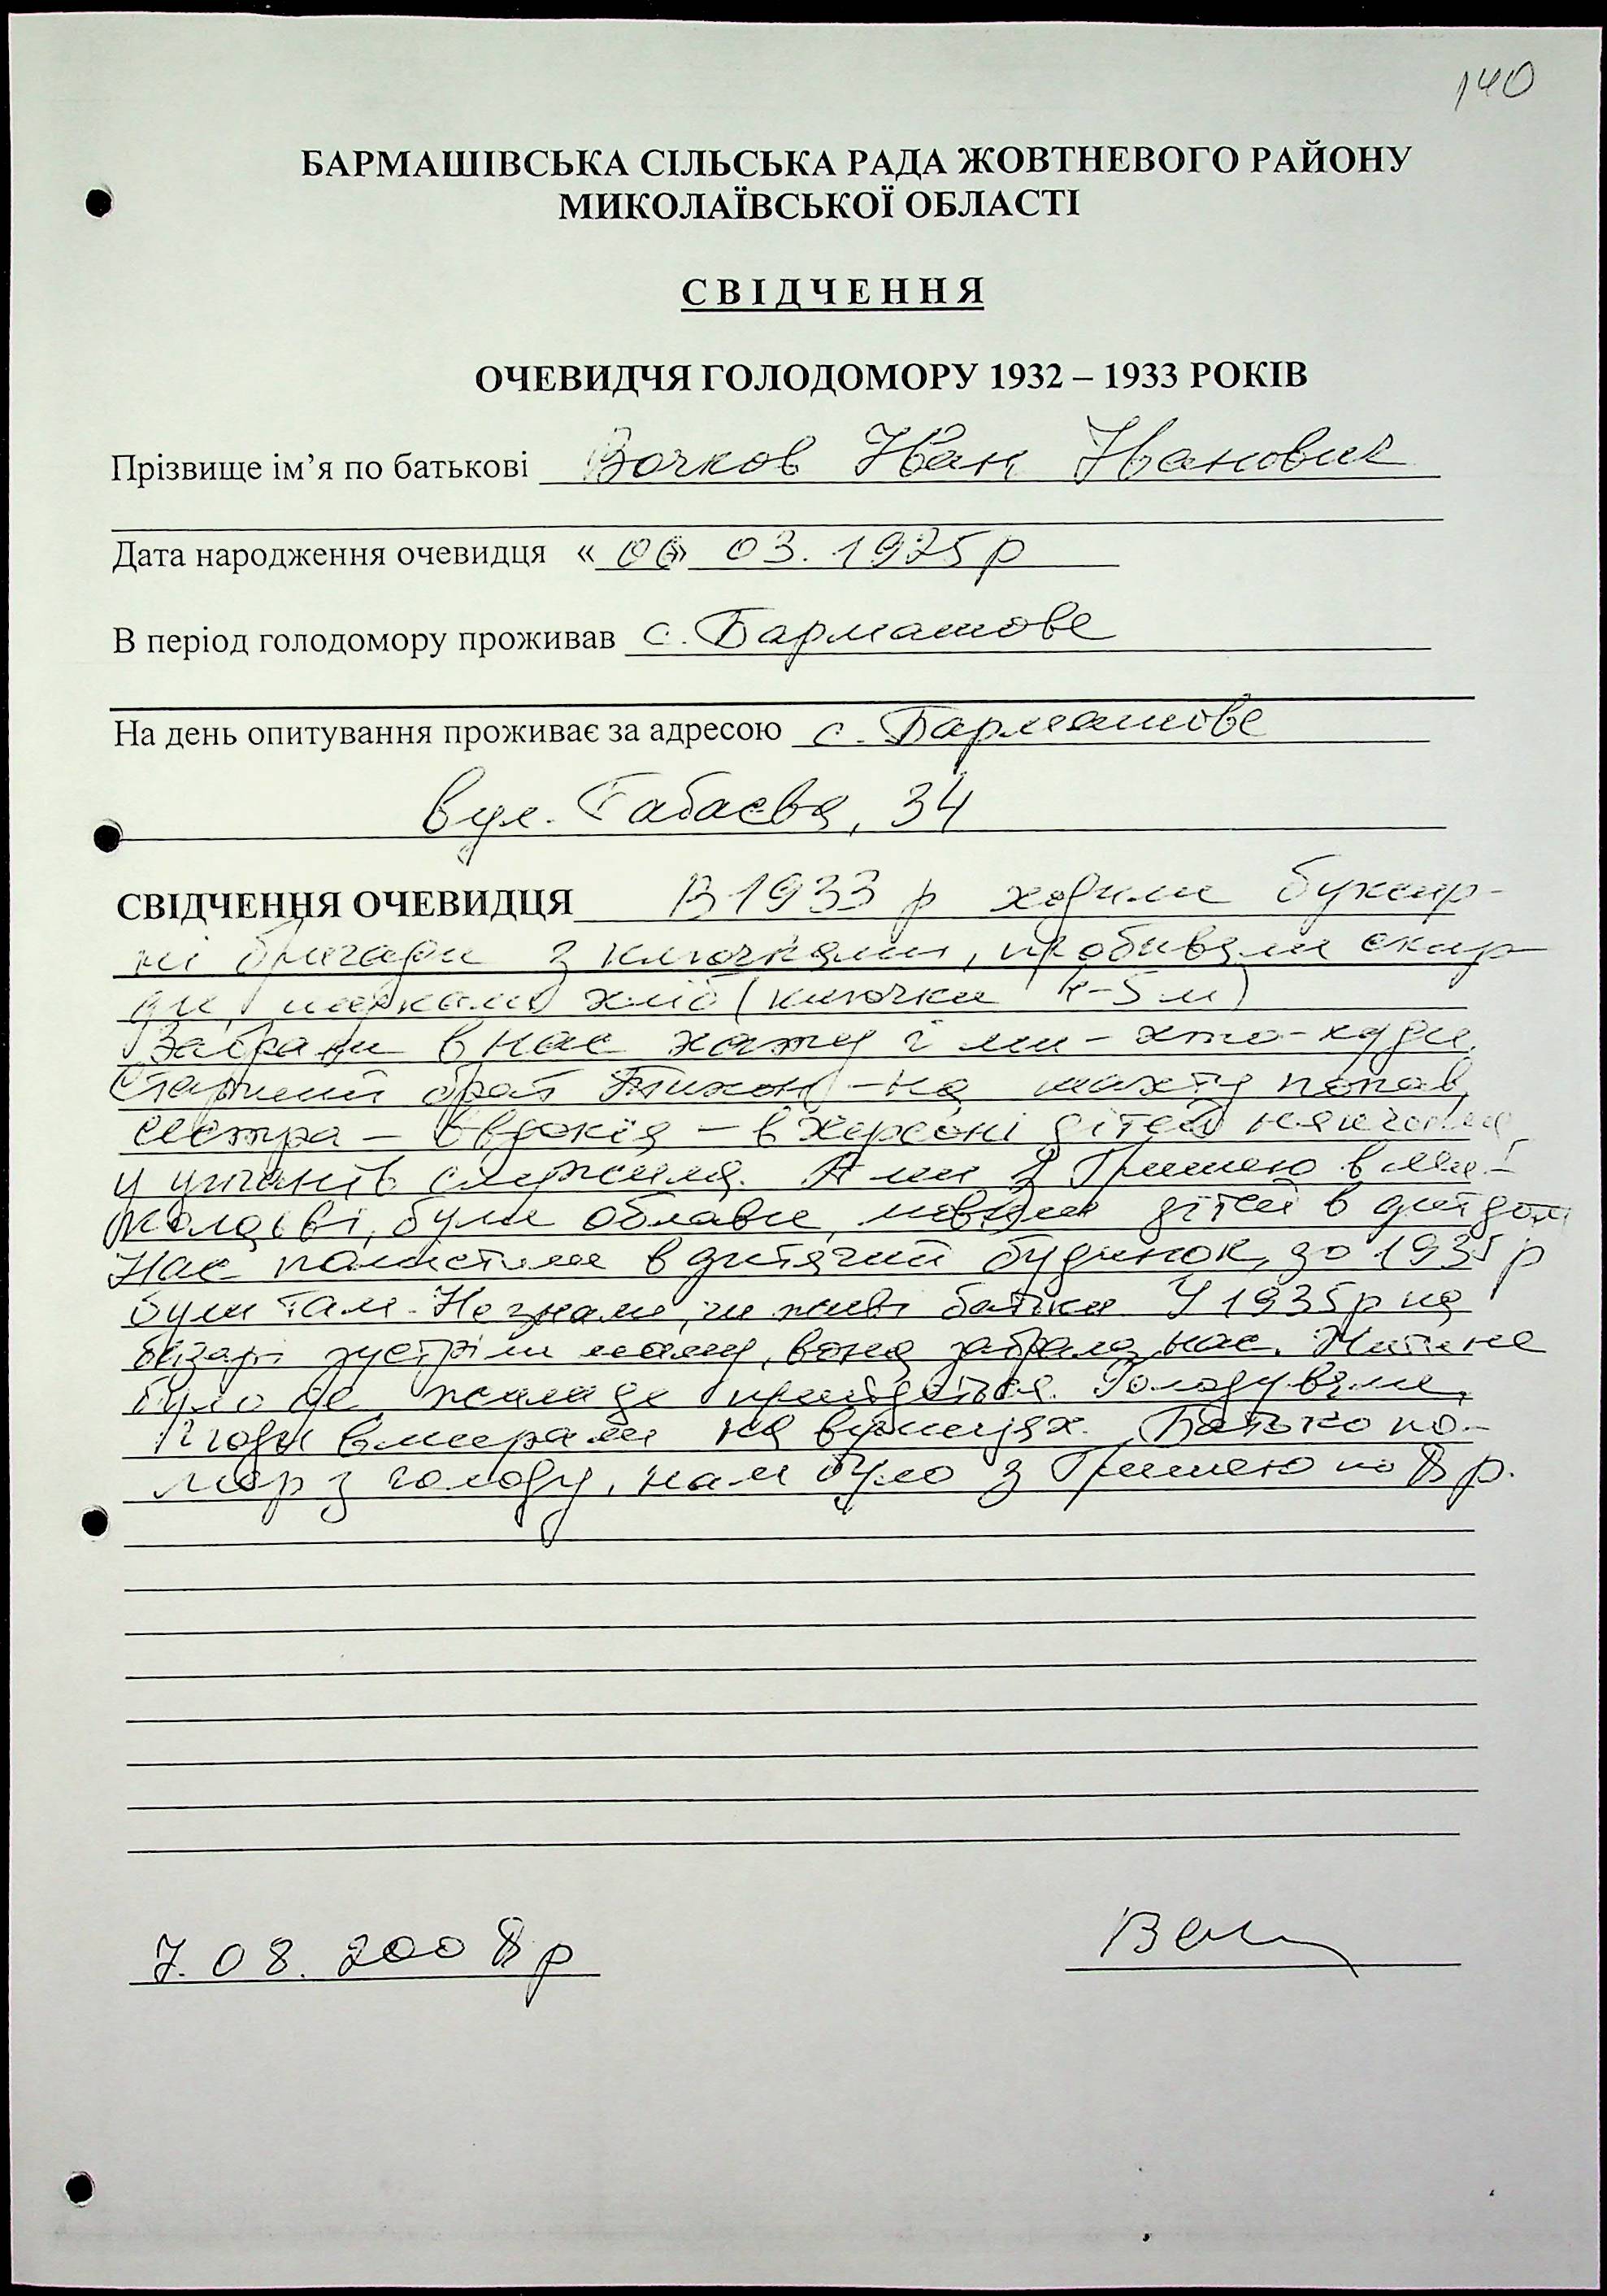 140
БАРМАШІВСЬКА СІЛЬСЬКА РАДА ЖОВТНЕВОГО РАЙОНУ
МИКОЛАЇВСЬКОЇ ОБЛАСТІ
СВІДЧЕННЯ
ОЧЕВИДЧЯ ГОЛОДОМОРУ 1932 – 1933 РОКІВ
Прізвище ім’я по батькові Вочков Іван Іванович
Дата народження очевидця « 06» 03. 1925р
В період голодомору проживав с. Бармашове
На день опитування проживає за адресою с. Бармашове
вул. Габаєва, 34
СВІДЧЕННЯ ОЧЕВИДЦЯ В 1933 р ходили буксир-
ні бригади з ключками, пробивали скир
ди, шукали хліб (ключки 4-5 м)
Забрали в нас хату і ми - хто-куди.
Старший брат Тихон - на шахту попав,
сестра - Євдокія - в Херсоні дітей нянчила
у служила. А ми з Гришею в Ми-
колаєві, були облави, ловили дітей в дитдом
Нас помістили в дитячий будинок, до 1935 р
були там. Не знали, чи живі батьки У 1935р на
базарі зустріли маму, вона забрала нас. Жити не
було де, жили де прийдеться. Голодували,
Люди вмирали на вулицях. Батько по-
мер з голоду, нам було з Гришею по 8 р.
7. 08. 2008 р